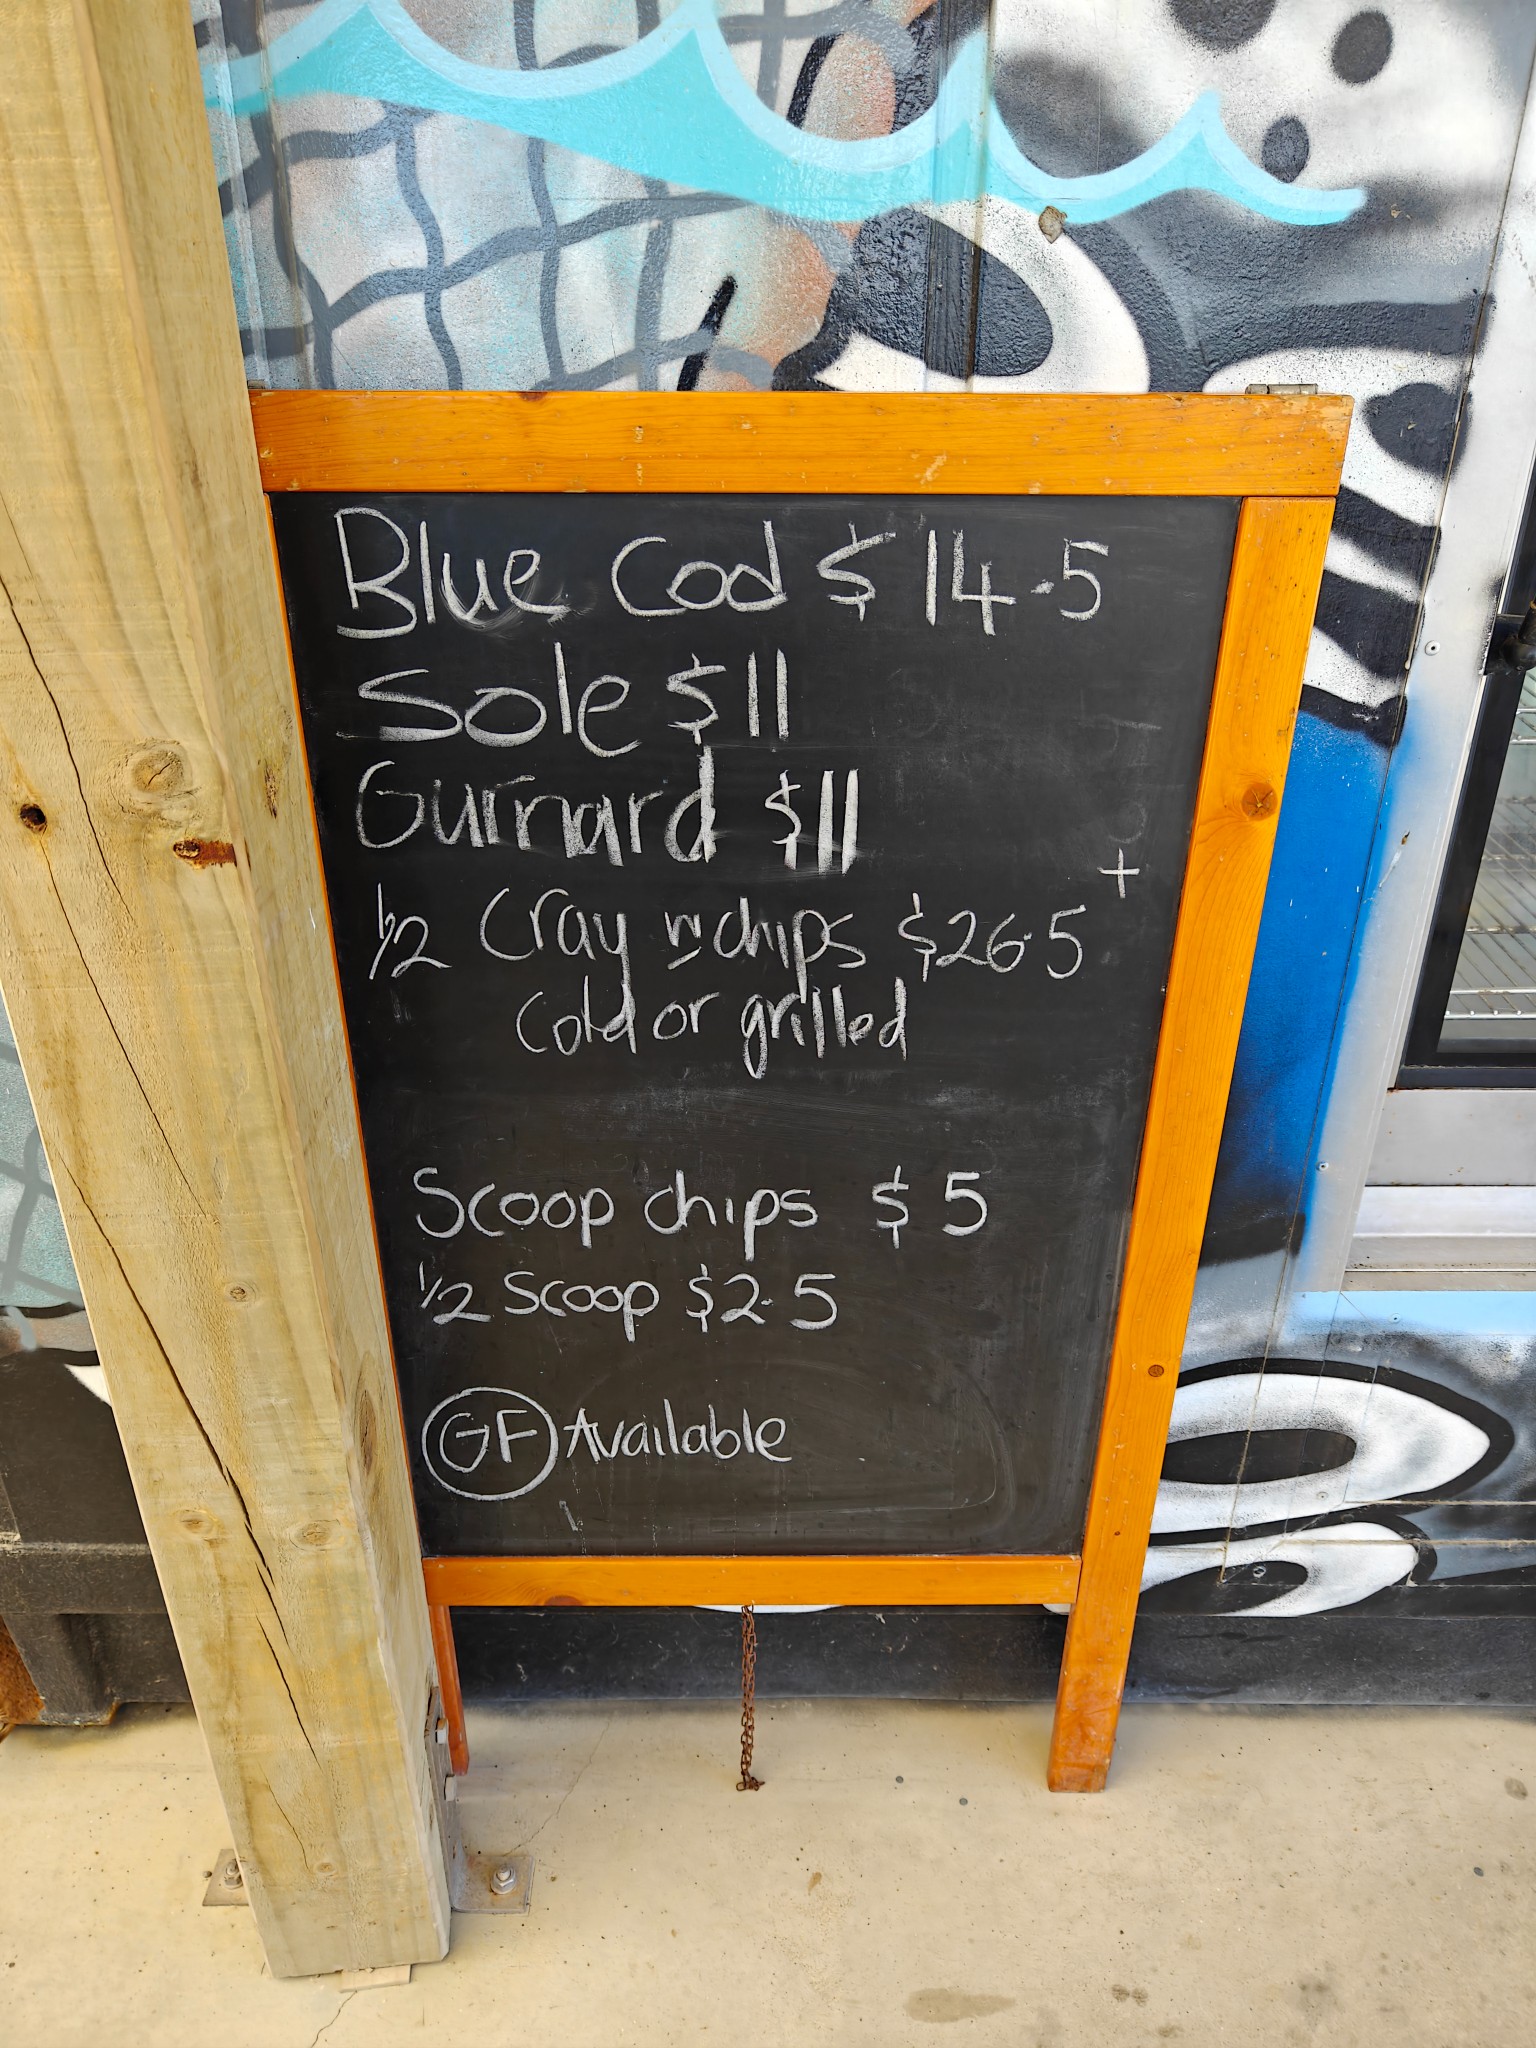 Blue Cod $14.5
Sole $11
Gurnard $11
½ Cray n chips $26.5 +
Cold or grilled
Scoop chips $5
½ Scoop $2.5
GF Available